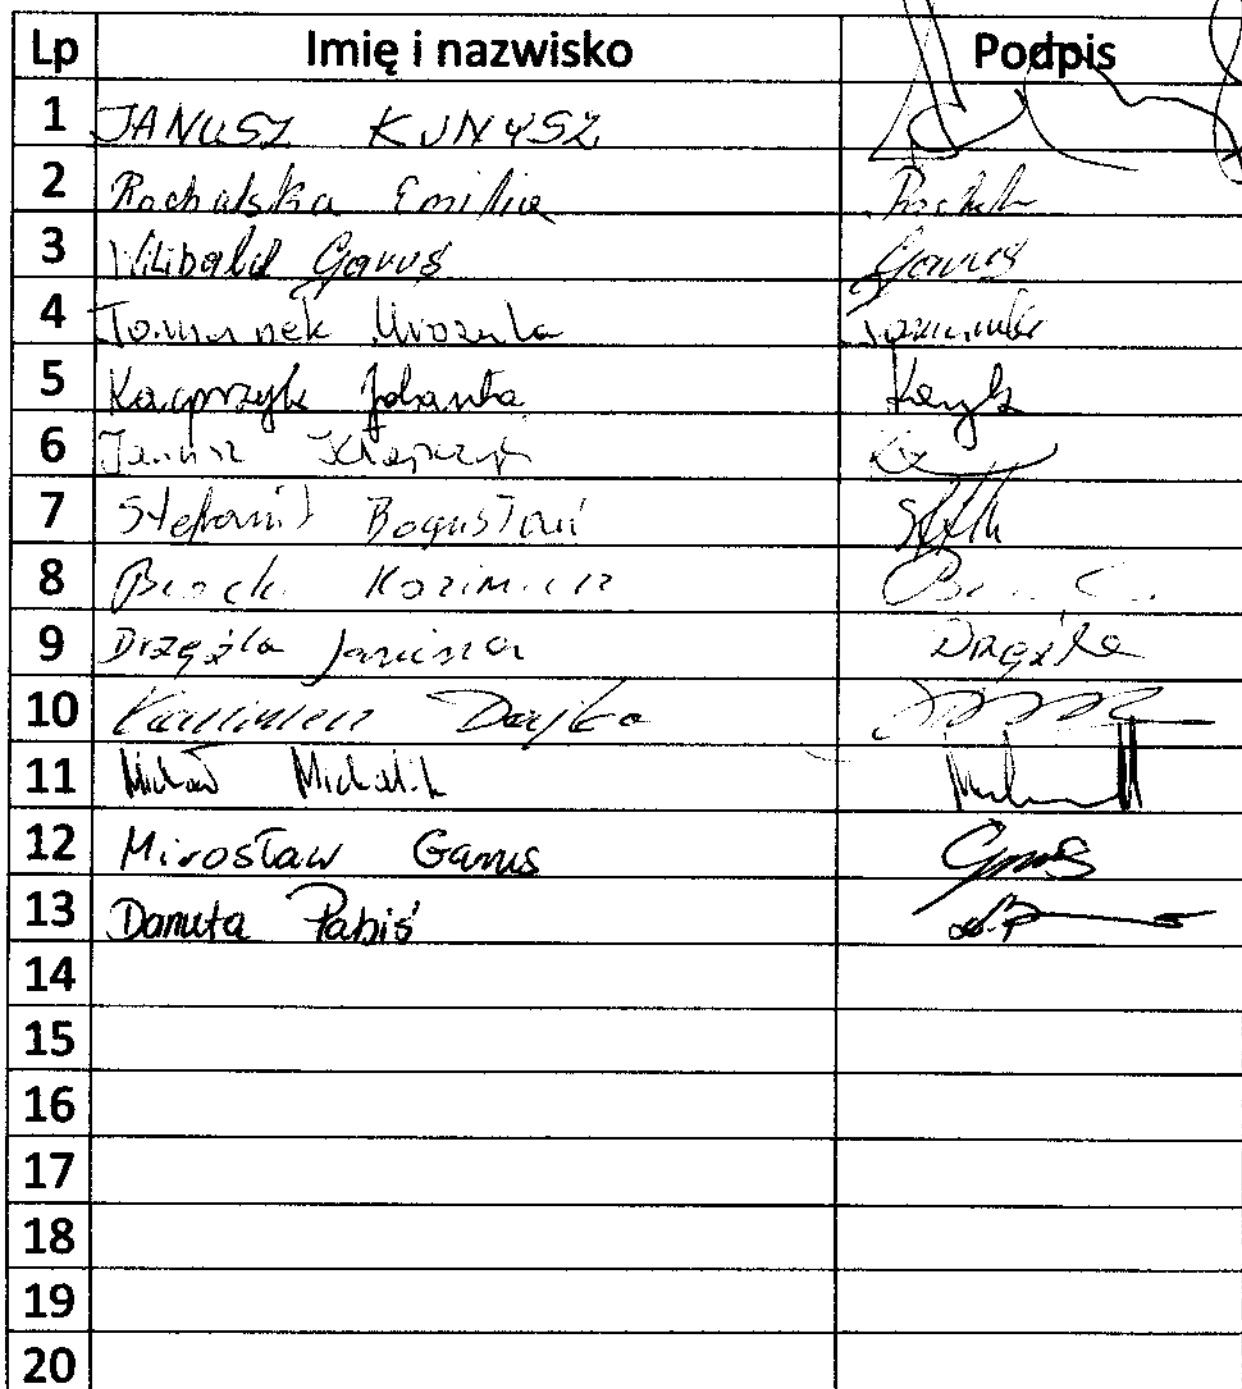 Lp Imię i nazwisko Podpis
1 JANUSZ KUNYSZ
2 Rochalska Emilia
3 Wilibald Garus Garus
4 Tomanek Urszula
5 Kacprzyk Jolanta
6 Janusz Krajczy
7 Stefanit Bogusław
8 Kazimierz
9 Drzęźla Janina Drzęźla
10 Kazimierz Dajka
11 Michał Michalik
12 Mirosław Garus Garus
13 Danuta Pabiś
14
15
16
17
18
19
20